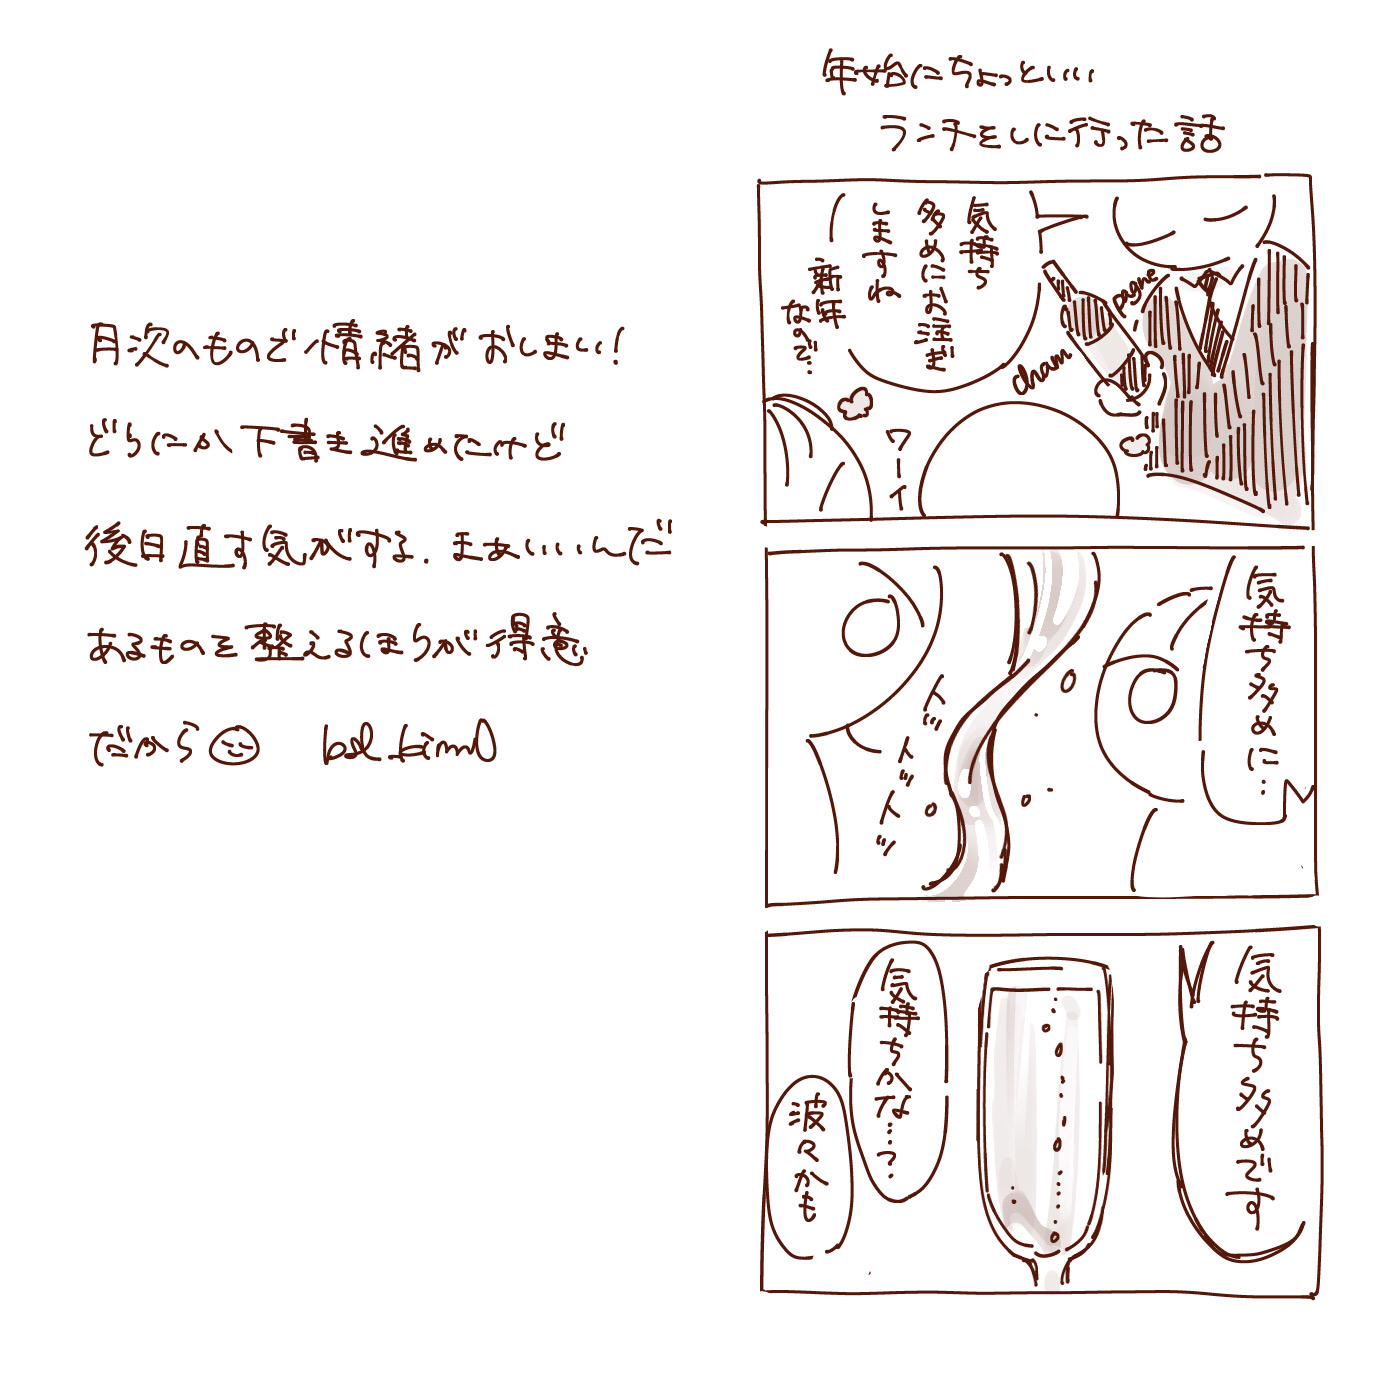 年始にちょっといい
ランチをしに行った話
気持ち
多めにお注ぎ
しますね
新年
なので…
cham
pagne
ワーイ
気持ち多めに…
トットットッ
気持ち多めです
気持ちかな…?
波々かも
月次のもので情緒がおしまい!
どうにか下書き進めたけど
後日直す気がする. まあいいんだ
あるものを整えるほうが得意
だから